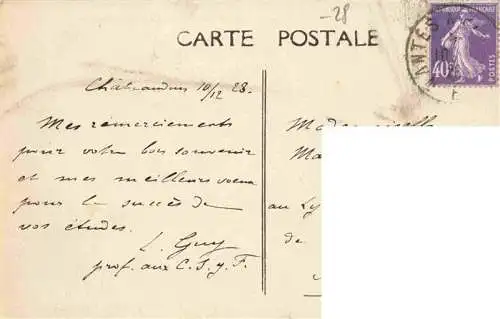 -28
CARTE POSTALE
RÉPUBLIQUE FRANÇAISE
40c
POSTES
NANTES
Châteaudun 10/12 28.
Mes remerciements
pour votre bon souvenir
et mes meilleurs voeux
pour le succès de
vos études.
L. Guy
prof. aux C. S. y. F.
Mademoiselle
Ma
au Ly
de